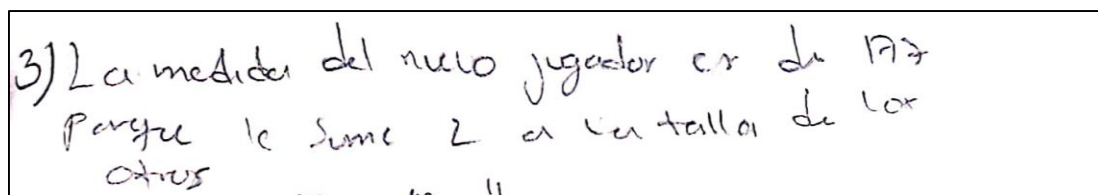 3) La medida del nuevo jugador es de 177
Porque le sume 2 a la talla de los
otros